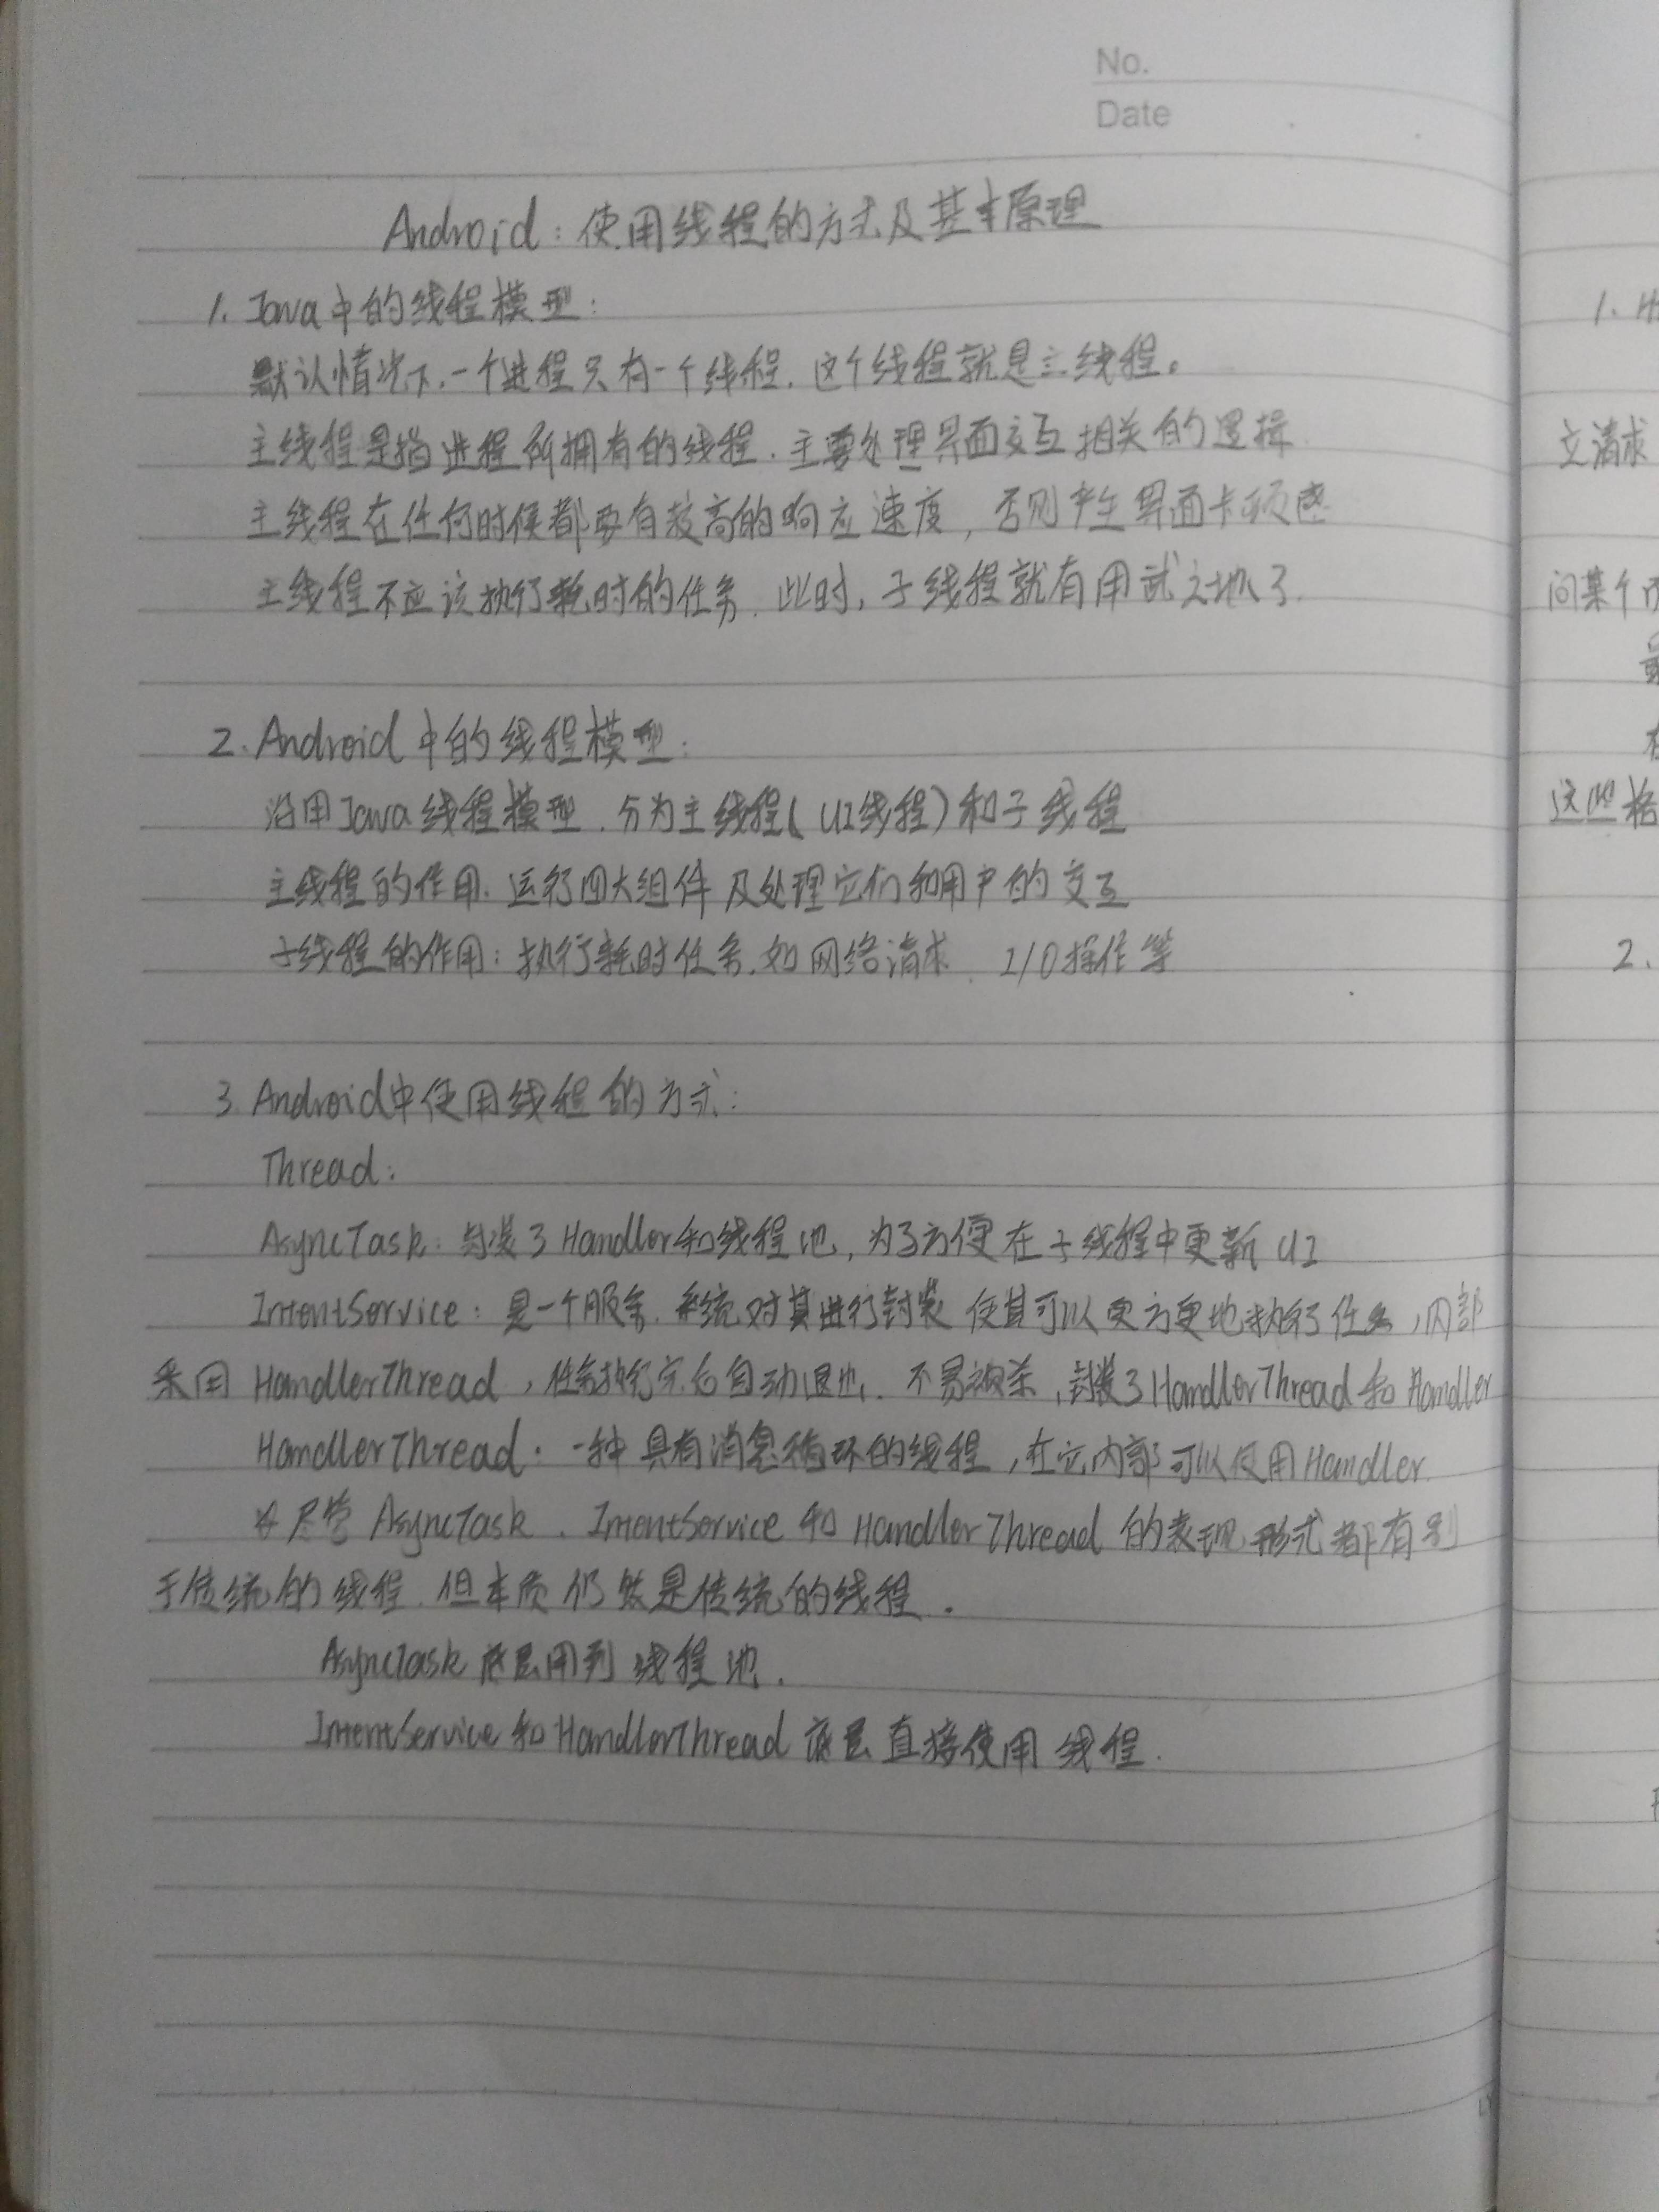 No.
Date
Android：使用线程的方式及基本原理
1. Java中的线程模型：
默认情况下，一个进程只有一个线程，这个线程就是主线程。
主线程是指进程所拥有的线程，主要处理界面交互相关的逻辑
主线程在任何时候都要有较高的响应速度，否则产生界面卡顿感
主线程不应该执行耗时的任务，此时，子线程就有用武之地了.
2. Android中的线程模型：
沿用Java线程模型，分为主线程（UI线程）和子线程
主线程的作用：运行四大组件及处理它们和用户的交互
子线程的作用：执行耗时任务，如网络请求、I/O操作等
3. Android中使用线程的方式：
Thread：
AsyncTask：封装了Handler和线程池，为了方便在子线程中更新UI
IntentService：是一个服务，系统对其进行封装 使其可以更方便地执行任务，内部
采用 HandlerThread，任务执行完后自动退出，不易被杀，封装了HandlerThread和Handler
HandlerThread：一种具有消息循环的线程，在它内部可以使用Handler.
* 尽管 AsyncTask、IntentService 和 HandlerThread 的表现形式都有别
于传统的线程，但本质仍然是传统的线程.
AsyncTask底层用到线程池.
IntentService和HandlerThread底层直接使用线程.
1.
文请求
问某个
这些格
2.